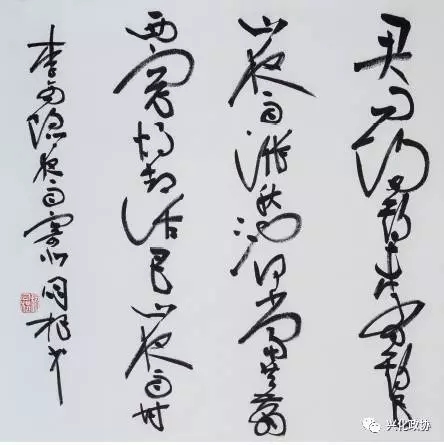 君问归期未有期巴
山夜雨涨秋池何当共剪
西窗烛却话巴山夜雨时
李商隐夜雨寄北 根书
兴化政协